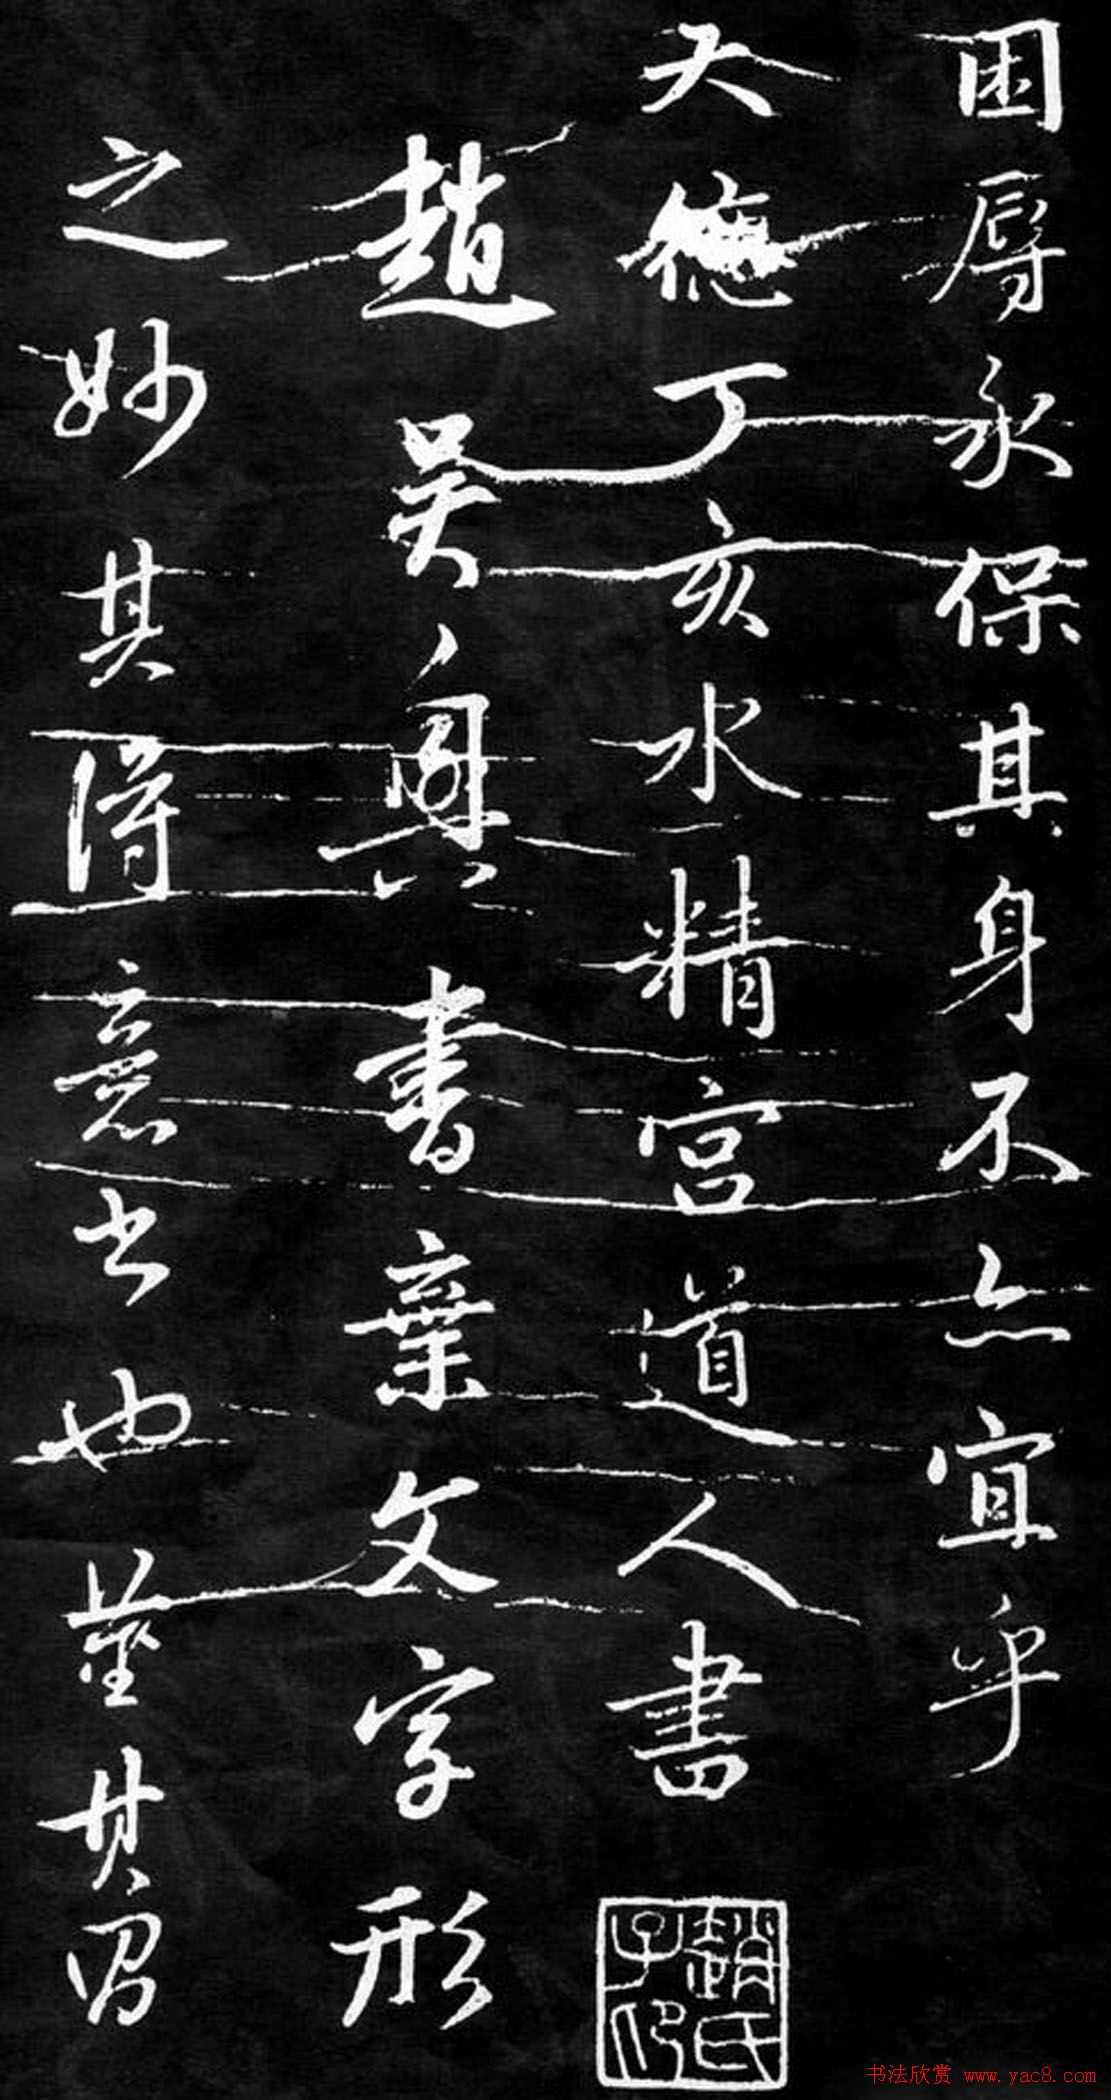 困辱永保其身不亦宜乎
大德丁亥水精宮道人書
趙氏子昂
趙吳興書棄文字形
之妙其得意书也董其昌
书法欣赏 www.yac8.com